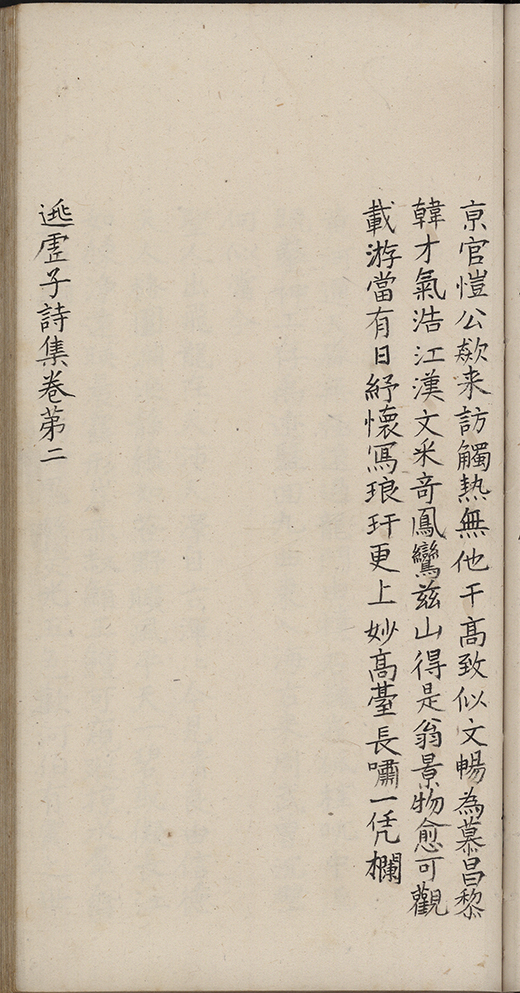 京官愷公歘来訪觸热無他干高致似文暢為慕昌黎
韓才氣浩江漢文采竒鳳鸞兹山得是翁景物愈可觀
載游當有日紓懷冩琅玕更上妙高臺長嘯一凭欄
逃虛子詩集卷第二